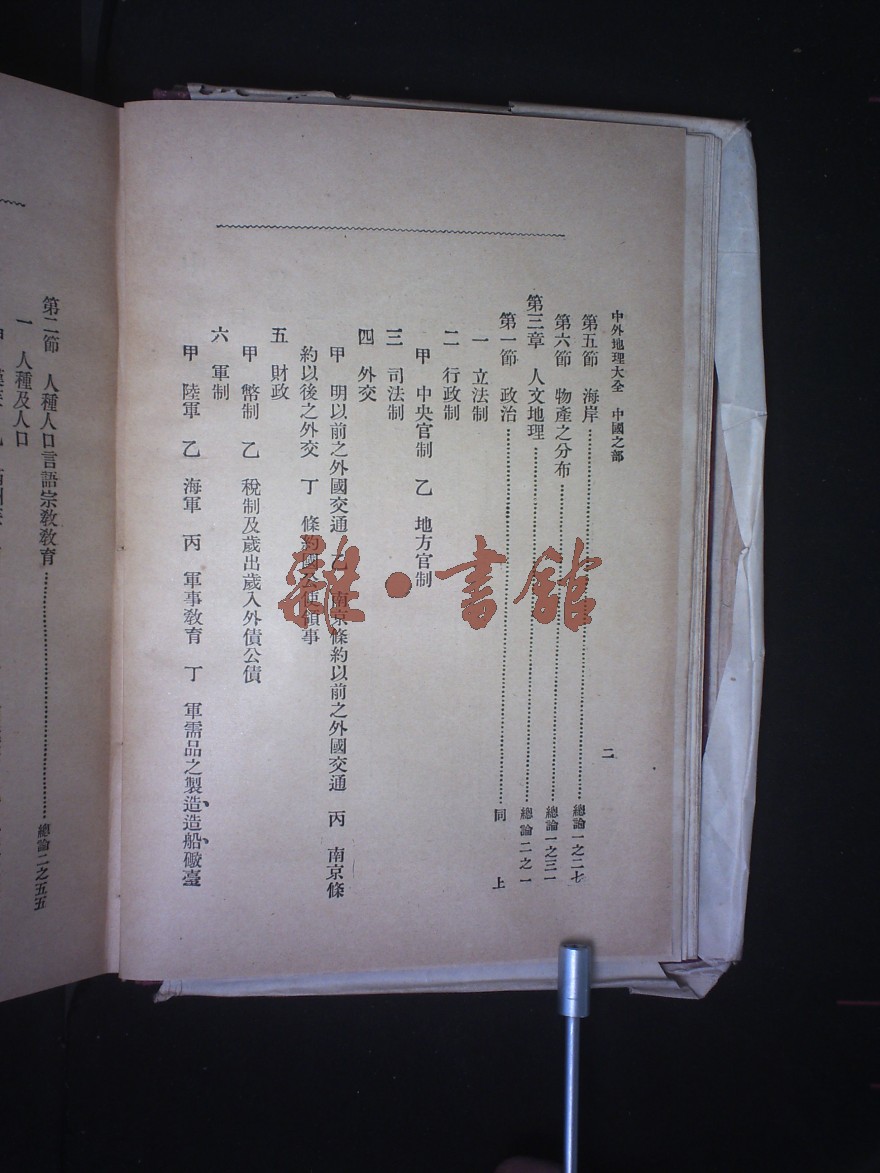 中外地理大全　中國之部
二
第五節　海岸……總論一之二七
第六節　物產之分布……總論一之三一
第三章　人文地理……總論二之一
第一節　政治……同上
一　立法制
二　行政制
甲　中央官制　乙　地方官制
三　司法制
四　外交
甲　明以前之外國交通　乙　南京條約以前之外國交通　丙　南京條
約以後之外交　丁　條約國公使領事
五　財政
甲　幣制　乙　稅制及歲出歲入外債公債
六　軍制
甲　陸軍　乙　海軍　丙　軍事教育　丁　軍需品之製造、造船、礮臺
第二節　人種人口言語宗教教育……總論二之五五
一　人種及人口
雜·書館